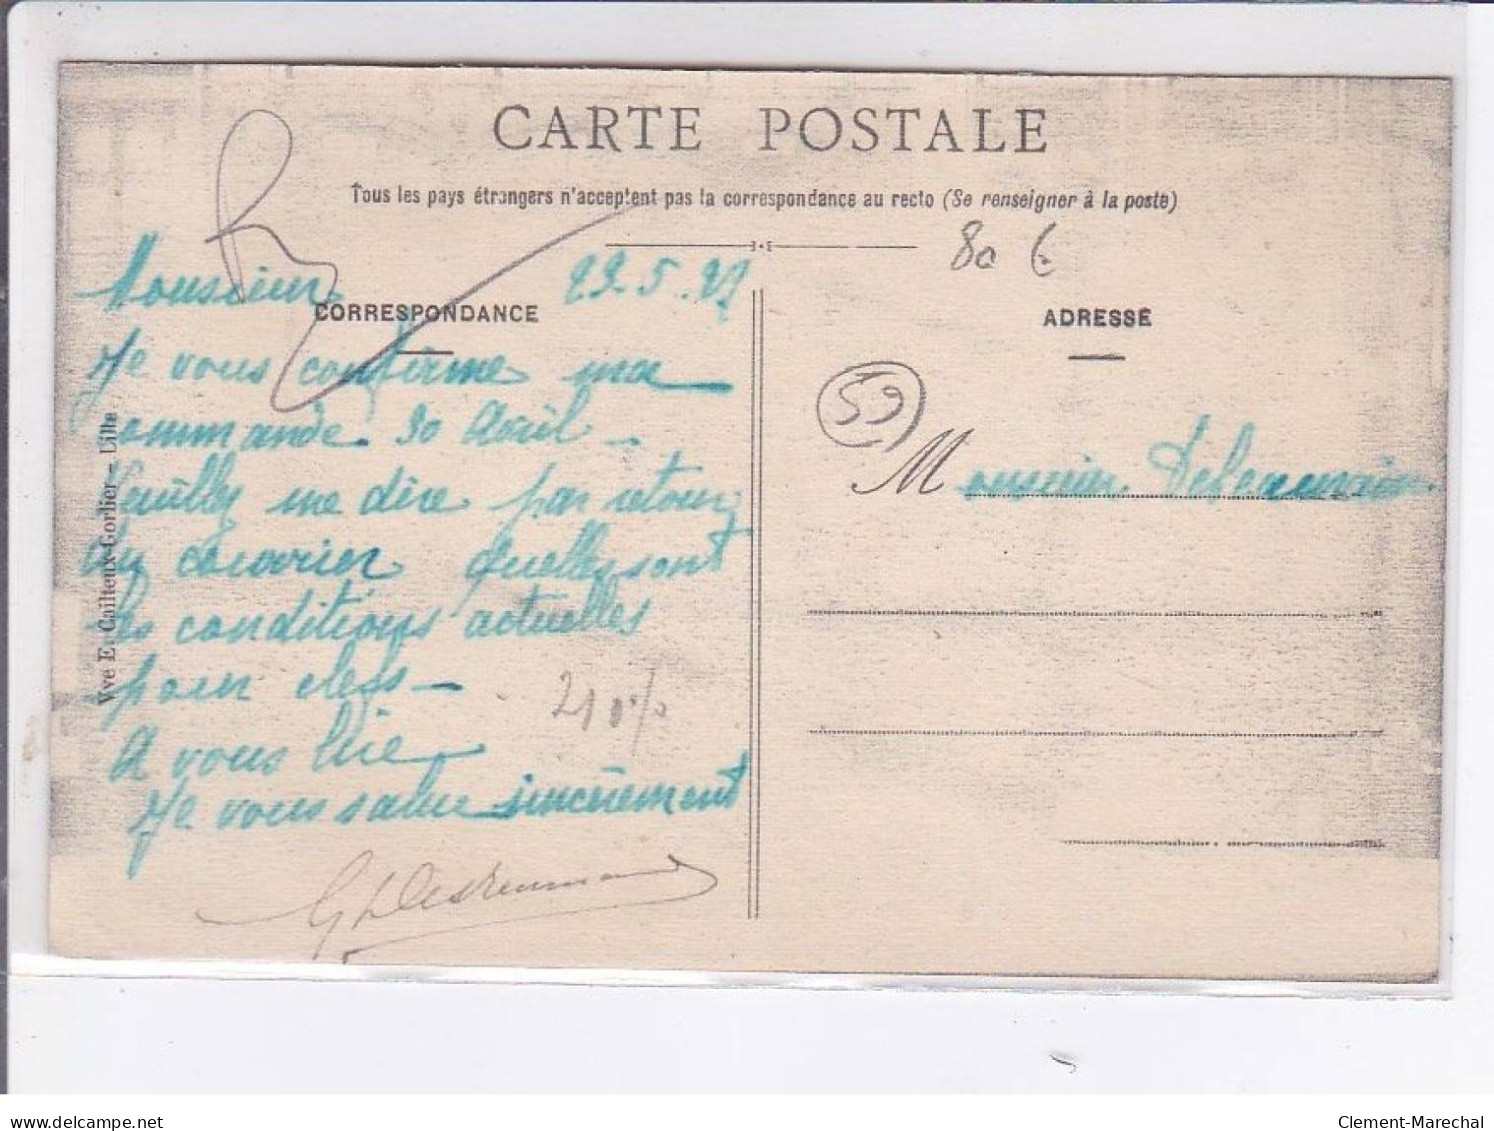 CARTE POSTALE
Tous les pays étrangers n'acceptent pas la correspondance au recto (Se renseigner à la poste)
80 €
CORRESPONDANCE
ADRESSE
Monsieur 22.5.27
Je vous confirme ma
commande 30 Avril –
Veuillez me dire par retour
du courrier quelles sont
les conditions actuelles
pour clefs –
A vous lire
Je vous salue sincèrement
21 %
59
Monsieur
Vve E. Cailteux-Gorlier – Lille
delcampe.net
Clement-Marechal